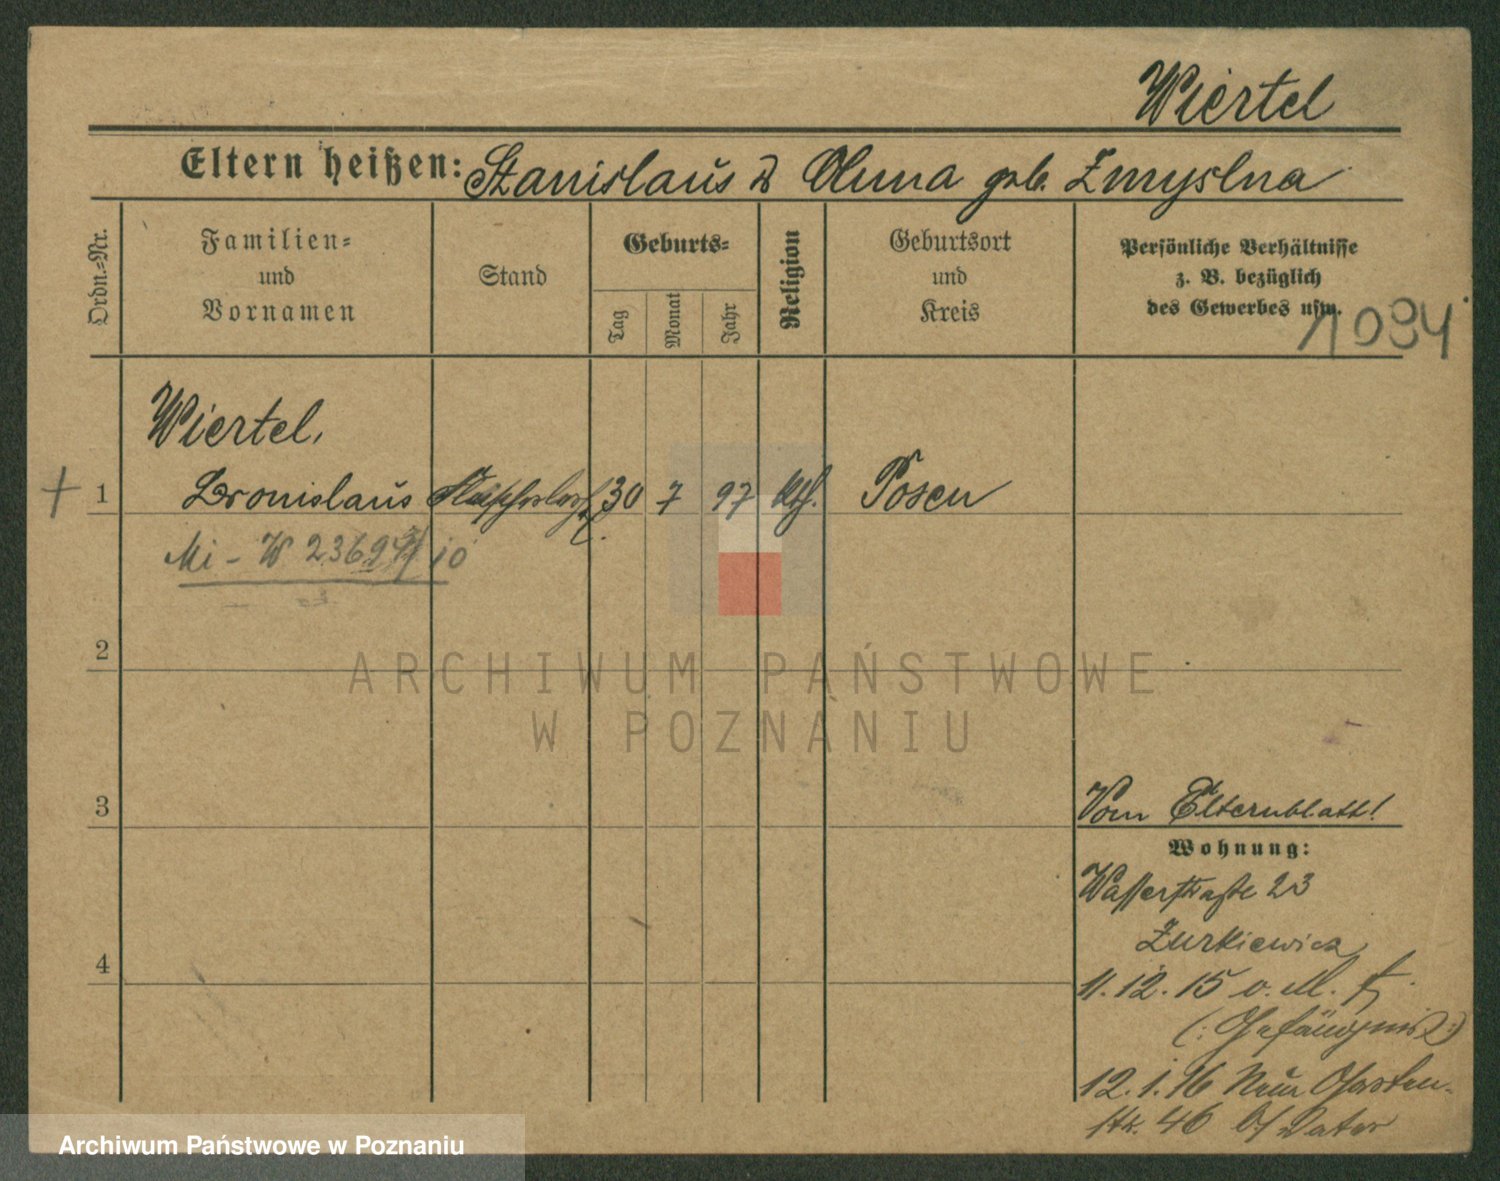 Wiertel
Eltern heißen: Stanislaus & Anna geb. Zmyslna
Ordn.-Nr.
Familien-
und
Vornamen
Stand
Geburts-
Tag
Monat
Jahr
Religion
Geburtsort
und
Kreis
Persönliche Verhältnisse
z. B. bezüglich
des Gewerbes usw.
1094
Wiertel,
+ 1 Bronislaus 30 7 97 kth. Posen
Mi - W
2
ARCHIWUM PAŃSTWOWE
W POZNANIU
3
Vom Elternblatt!
Wohnung:
Wasserstraße 23
Zurkiewicz
4
11.12.15 v. M.
(: Gefängnis :)
12.1.16 Neue Garten-
str. 46 b/ Vater
Archiwum Państwowe w Poznaniu